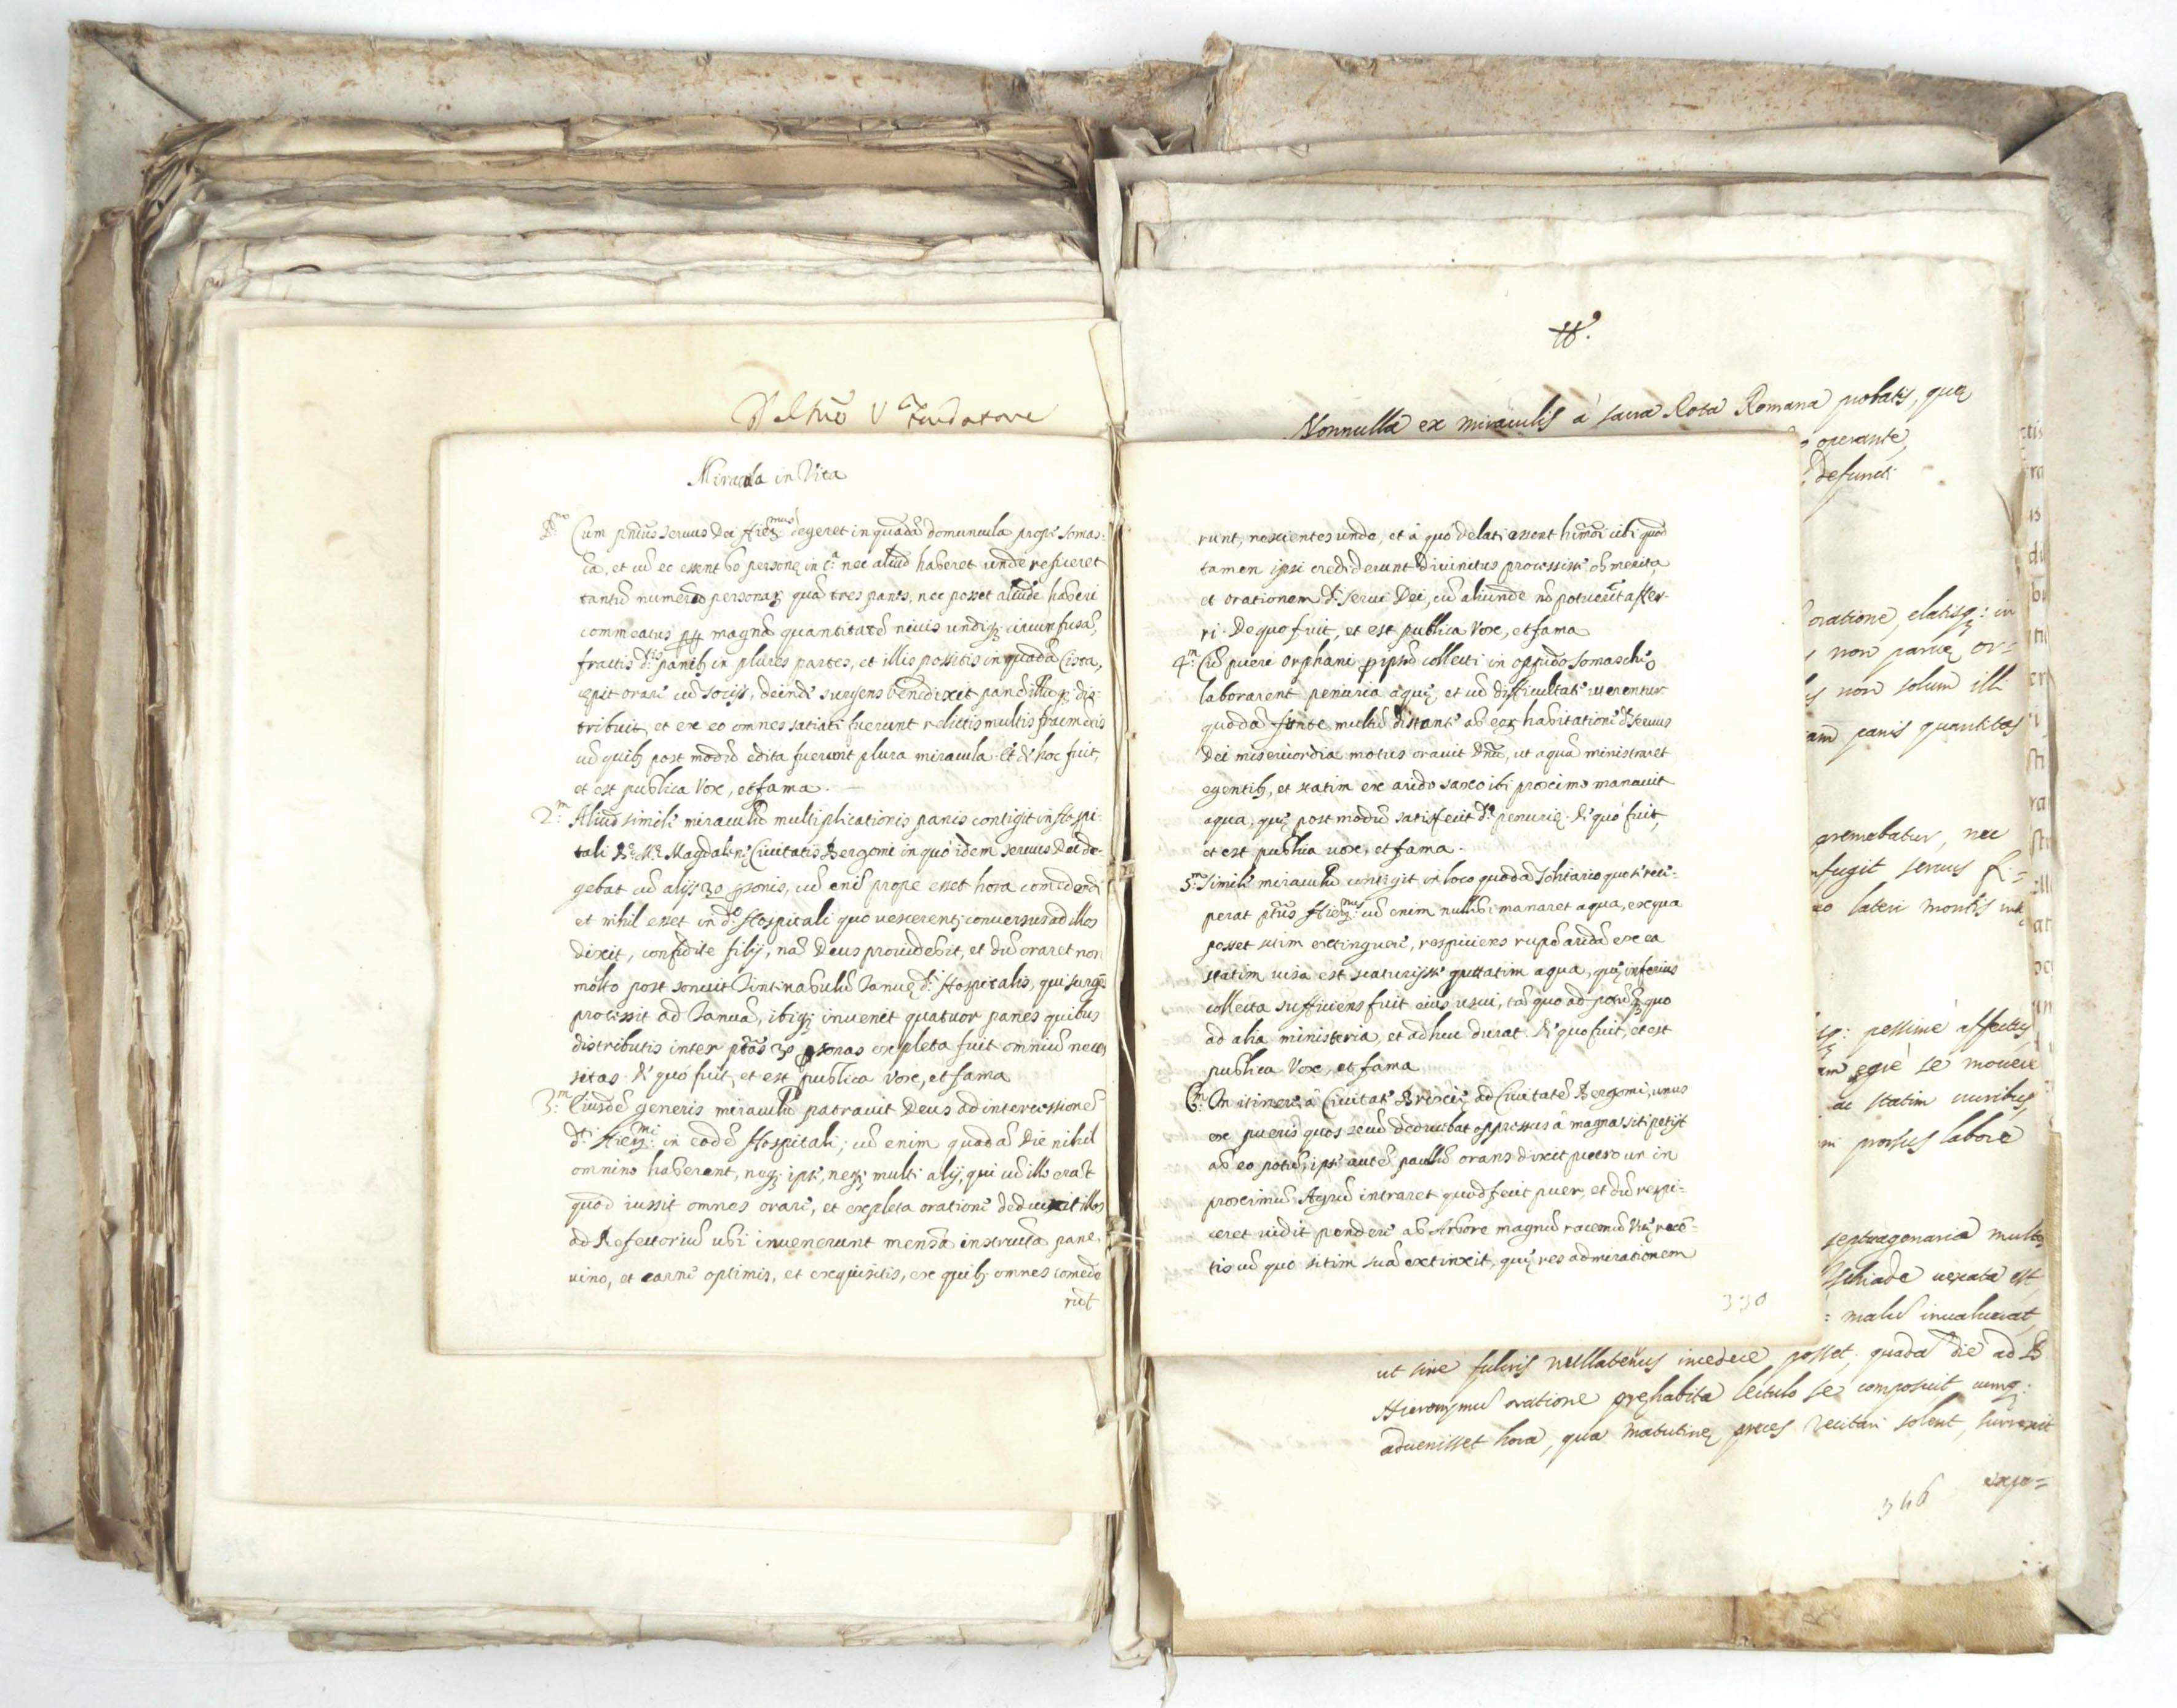 Del nr̃o V Fundatore
Miracula in Vita
Pmo Cum p̃ntus servus Dei Hiermus degeret in quadã domuncula prope Somas:
ca, et cũ eo essent 60 personę in ca. nec aliud haberet unde reficeret
tantũ numerũ personaꝝ quã tres panes, nec posset aliũde haberi
commeatus magnã quantitatẽ nivis undiqꝫ circunfusã,
fractis d.is panibꝫ in plures partes, et illis positis in quadã Cista,
cepit orare cũ socijs, deinde surgens benedixit panẽ illũqꝫ dis:
tribuit, et ex eo omnes satiati fuerunt relictis multis fragmẽtis
cũ quibꝫ post modũ edita fuerunt plura miracula. Et de hoc fuit,
et est publica Vox, et fama.
2.m Aliud simile miraculũ multiplicationis panis contigit in Hospi-
tali Magdalenę Civitatis Bergomi in quo idem servus Dei de-
gebat cũ alijs 30 ꝑsonis, cũ enĩ prope esset hora comedendi
et nihil esset in d.o Hospitali quo vescerent; conversus ad illos
dixit, confidite filij, nã Deus providebit, et dũ oraret non
molto post sonuit Tintinabulũ Januę d.i Hospitalis, qui surgẽs
processit ad Januã, ibiqꝫ invenit quatuor panes quibus
distributis inter p̃tas 30 ꝑsonas expleta fuit omniũ neces
sitas. De quo fuit, et est publica vox, et fama
3.m Eiusdẽ generis miraculũ patravit Deus ad intercessionẽ
d.i Hiermi in eodẽ Hospitali; cũ enim quadã die nihil
omnino haberent, neqꝫ ipse, neqꝫ multi alij, qui cũ illo erãt
quod iussit omnes orare, et expleta oratione deduxit illos
ad Refectoriũ ubi invenerunt mensã instructã pane,
vino, et carne optimis, et exquisitis, ex quibꝫ omnes comede
rũt
runt, nescientes unde, et à quo delati essent hm̃oi cibi quod
tamen ipsi crediderunt divinitus processisse ob merita
et orationem d.i servi Dei, cũ aliunde nõ potuerĩt affer-
ri. De quo fuit, et est publica Vox, et fama
4.m Cũ pueri orphani ꝑ ipsũ collecti in oppido Somaschę
laborarent penuria aquę, et cũ difficultate uterentur
quodã fonte multũ distante ab eoꝝ habitatione d. servus
Dei misericordia motus oravit Dnũ, ut aquã ministraret
egentibꝫ, et statim ex arido saxo ibi proximo manavit
aqua, quę post modũ satisfecit d.ę penurię. De quo fuit,
et est publica vox, et fama.
5.m Simile miraculũ contigit in loco quodã solitario quo se reci-
perat p̃tus Hiermus cũ enim nullibi manaret aqua, ex qua
posset sitim extinguere, respiciens rupẽ aridã ex ea
statim visa est scaturisse guttatim aqua, quę inferius
collecta sufficiens fuit eius usui, tã quo ad potũ, quo
ad alia ministeria, et adhuc durat. De quo fuit, et est
publica Vox, et fama
6.m In itinere à Civitate Brixię ad Civitatẽ Bergomi, unus
ex pueris quos secũ deducebat oppressus à magna siti petijt
ab eo potũ, ipse autẽ paullũ orans dixit puero ut in
proximũ Agrũ intraret quod fecit puer, et dũ respi-
ceret vidit pendere ab Arbore magnũ racemũ Uvę recẽ-
tis cũ quo sitim suã extinxit, quę res admirationem
330
Nonnulla ex miraculis à sacra Rota Romana probatis, quę
operante,
defuncti
oratione, elatisqꝫ: in
non parvę or=
non solum ill
panis quantitas
premebatur, nec
fugit servus
lateri montis
pessimè affectus
ęgrè se movere
ac statim viribus
prorsus labore
septuagenaria
vexata est
malũ invaluerat,
ut sine fulcris nullatenus incedere posset, quadã die ad B
Hieronymũ oratione pręhabita lectulo se composuit cumqꝫ:
advenisset hora, qua matutinę preces recitari solent, surrexit
expe=
346